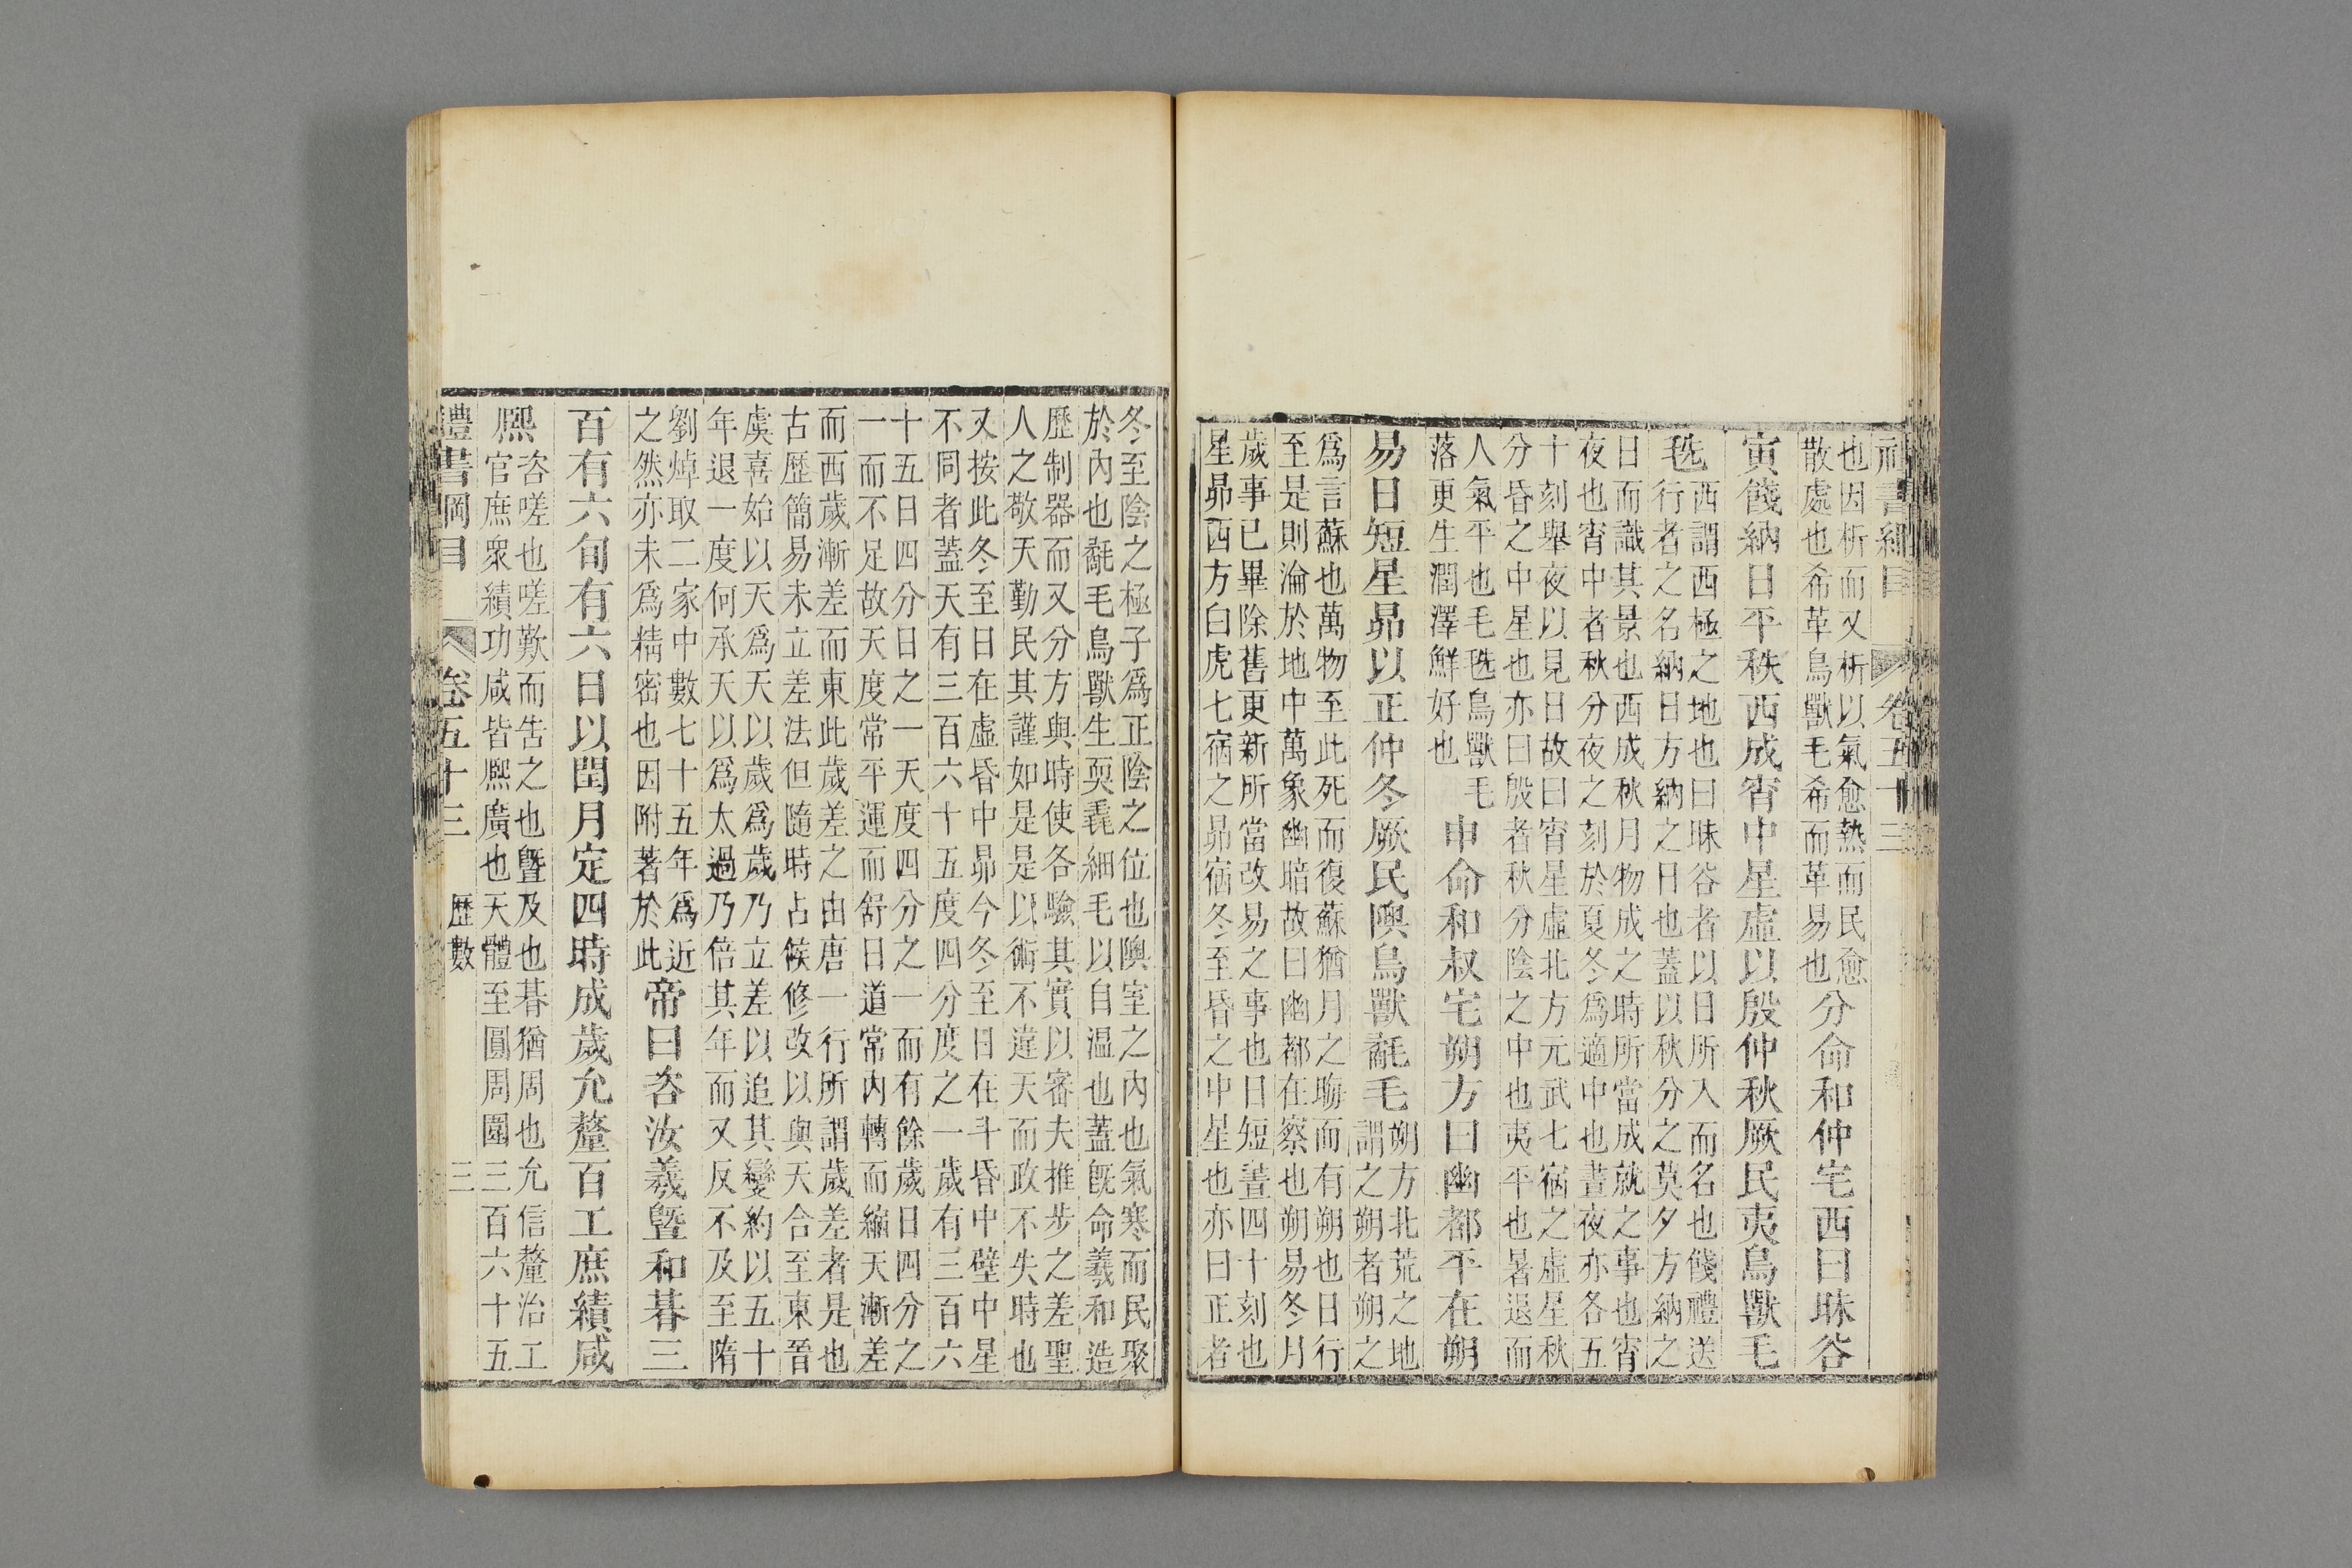 禮書綱目 卷五十三
也因析而又析以氣愈熱而民愈
散處也希革鳥獸毛希而革易也
分命和仲宅西曰昧谷
寅餞納日平秩西成宵中星虛以殷仲秋厥民夷鳥獸毛
毨
西謂西極之地也曰昧谷者以日所入而名也餞禮送
行者之名納日方納之日也蓋以秋分之莫夕方納之
日而識其景也西成秋月物成之時所當成就之事也宵
夜也宵中者秋分夜之刻於夏冬爲適中也晝夜亦各五
十刻舉夜以見日故曰宵星虛北方元武七宿之虛星秋
分昏之中星也亦曰殷者秋分陰之中也夷平也暑退而
人氣平也毛毨鳥獸毛
落更生潤澤鮮好也
申命和叔宅朔方曰幽都平在朔
易日短星昴以正仲冬厥民隩鳥獸氄毛
朔方北荒之地
謂之朔者朔之
爲言蘇也萬物至此死而復蘇猶月之晦而有朔也日行
至是則淪於地中萬象幽暗故曰幽都在察也朔易冬月
歲事已畢除舊更新所當改易之事也日短晝四十刻也
星昴西方白虎七宿之昴宿冬至昏之中星也亦曰正者
冬至陰之極子爲正陰之位也隩室之內也氣寒而民聚
於內也氄毛鳥獸生耎毳細毛以自温也蓋既命羲和造
歷制器而又分方與時使各驗其實以審夫推步之差聖
人之敬天勤民其謹如是是以術不違天而政不失時也
又按此冬至日在虛昏中昴今冬至日在斗昏中壁中星
不同者蓋天有三百六十五度四分度之一歲有三百六
十五日四分日之一天度四分之一而有餘歲日四分之
一而不足故天度常平運而舒日道常內轉而縮天漸差
而西歲漸差而東此歲差之由唐一行所謂歲差者是也
古歷簡易未立差法但隨時占候修改以與天合至東晉
虞喜始以天爲天以歲爲歲乃立差以追其變約以五十
年退一度何承天以爲太過乃倍其年而又反不及至隋
劉焯取二家中數七十五年爲近
之然亦未爲精密也因附著於此
帝曰咨汝羲暨和朞三
百有六旬有六日以閏月定四時成歲允釐百工庶績咸
熙
咨嗟也嗟歎而告之也暨及也朞猶周也允信釐治工
官庶衆績功咸皆熙廣也天體至圓周圍三百六十五
禮書綱目 卷五十三 歷數 三